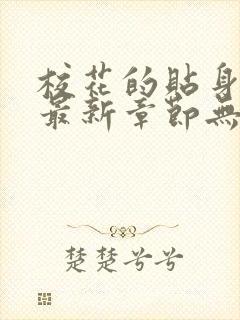 校花的貼身
最新章節無
楚楚兮兮